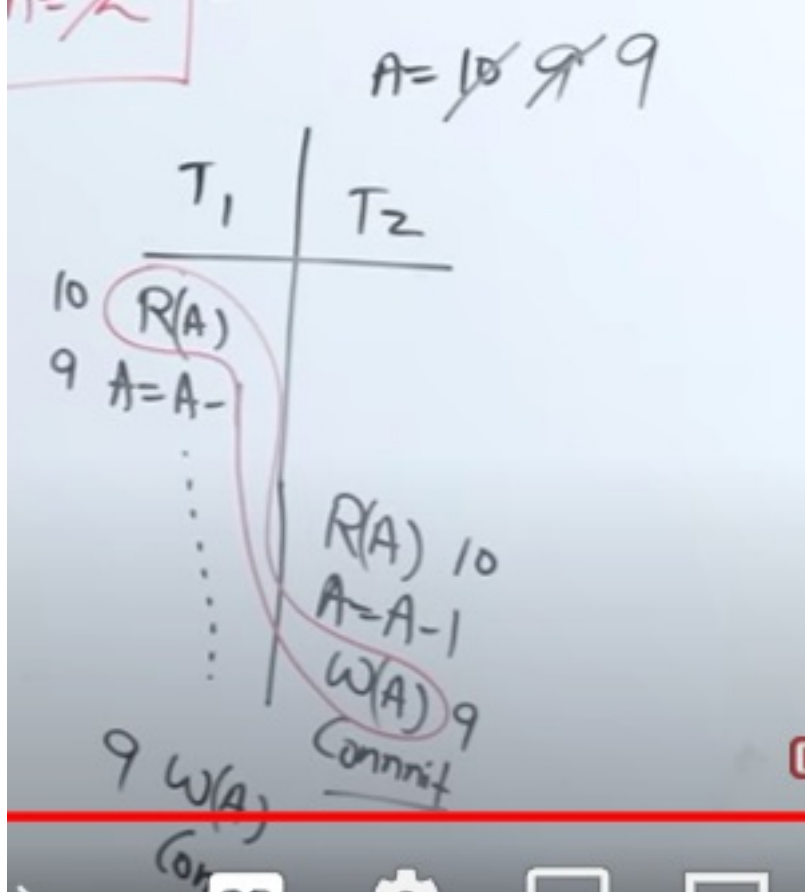 A= 10 9 9
T1 T2
10 R(A)
9 A=A-
R(A) 10
A=A-1
W(A) 9
Commit
9 W(A)